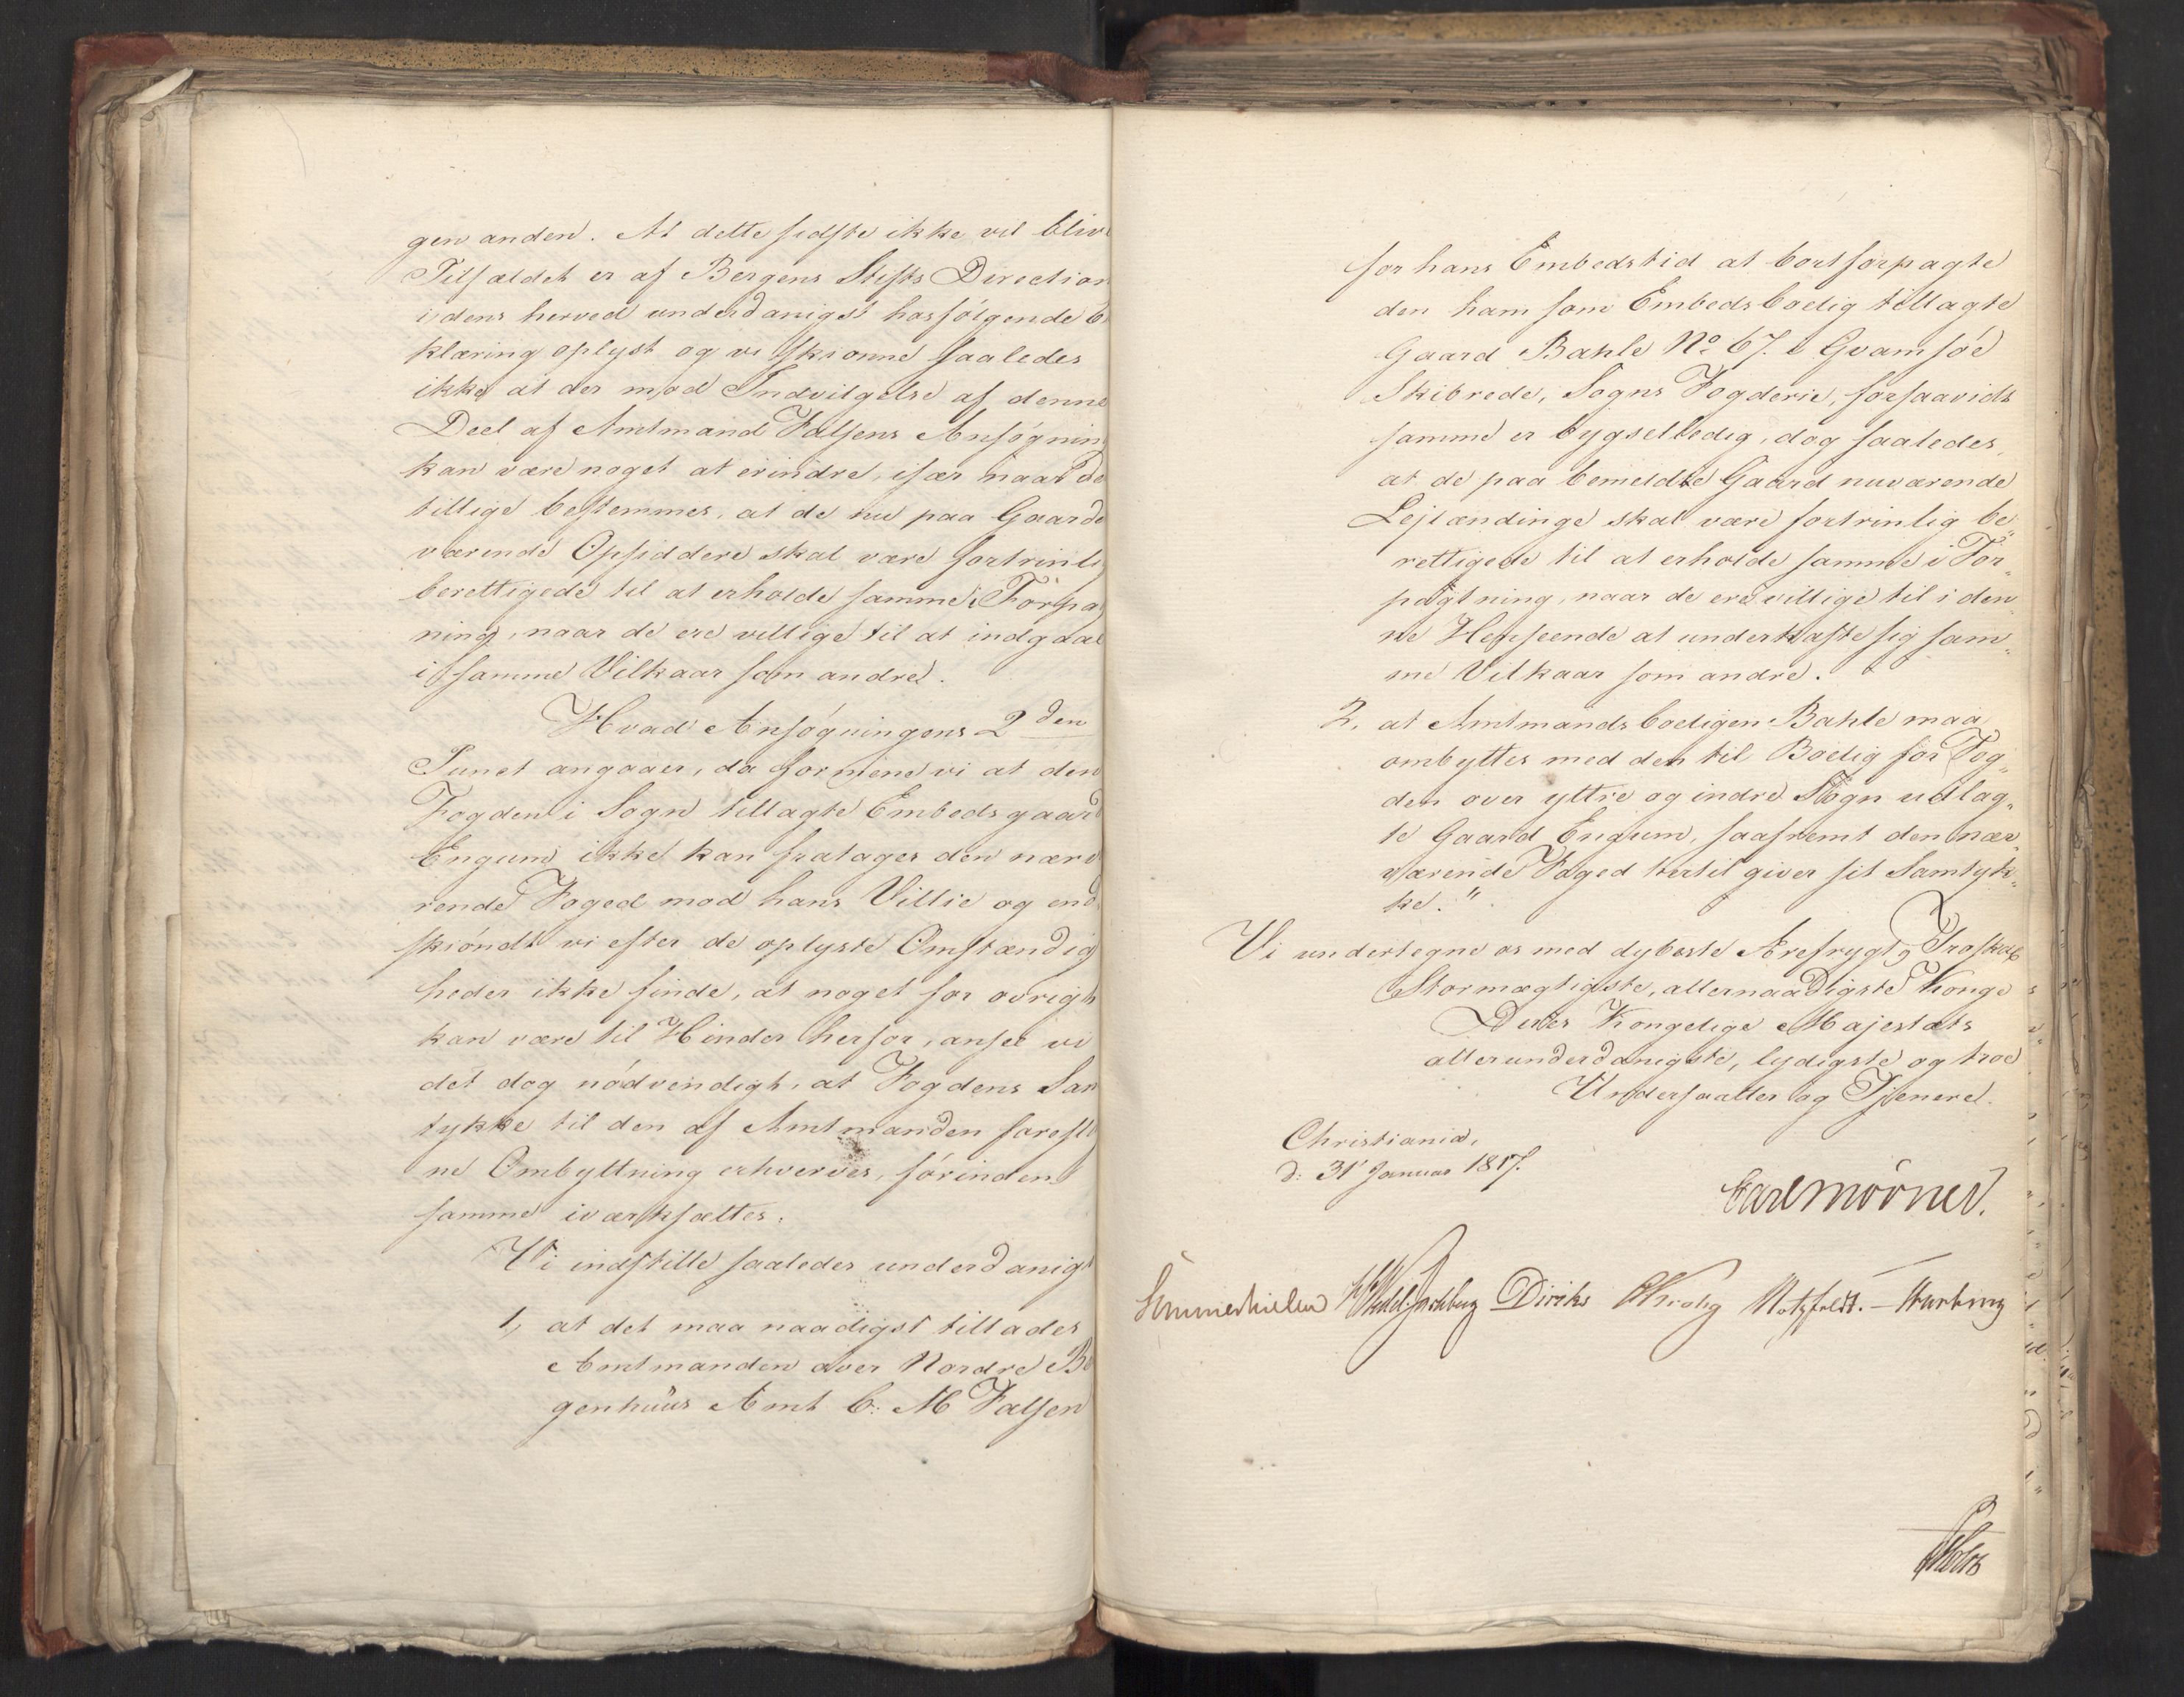 gen anden. At dette sidste ikke vil blive
Tilfældet er af Bergens Stifts Direction
i dens herved underdanigst hosfølgende Er
klæring oplyst og vi skiønne saaledes
ikke at der mod Indvilgelse af denne
Deel af Amtmand Falsens Ansøgning
kan være noget at erindre, især naar det
tillige bestemmes, at de nu paa Gaarden
værende Opsiddere skal være fortrinlig
berettigede til at erholde samme i Forpa
ning, naar de ere villige til at indgaae
i samme Vilkaar som andre.
Hvad Ansøgningens 2den
Punct angaaer, da formene vi at den
Fogden i Sogn tillagte Embedsgaard
Engum ikke kan fratages den nære
rende Foged mod hans Villie og end
skiøndt vi efter de oplyste Omstændig
heder ikke finde, at noget for øvrigt
kan være til Hinder herfor, ansee vi
det dog nødvendigt, at Fogdens Sam
tykke til den af Amtmanden foresl
ne Ombyttning erhverves, førinden
samme iværksættes.
Vi indstille saaledes underdanigst
1, at det maa naadigst tillades
Amtmanden over Nordre Be
genhuus Amt C. M Falsen
for hans Embedstid at bortforpagte
den ham som Embedsboelig tillagte
Gaard Bahle No 67. i Qvamsøe
Skibrede, Sogns Fogderie, forsaavidt
samme er bygselledig, dog saaledes,
at de paa bemeldte Gaard nuværende
Lejlændinge skal være fortrinlig be„
rettigede til at erholde samme i For„
pagtning, naar de ere villige til i den„
ne Henseende at underkaste sig sam„
me Vilkaar som andre.
2. at Amtmandsboeligen Bahle maa
ombyttes med den til Boelig for Fog„
den over yttre og indre Sogn udlag„
te Gaard Engum, saafremt den nær„
værende Foged hertil giver sit Samtyk„
ke."
Vi undertegne os med dybeste Ærefrygt og Troskab
Stormægtigste, allernaadigste Konge
Deres Kongelige Majestæts
allerunderdanigste, lydigste og troe
Undersaatter og Tjenere.
Christiania,
d: 31 Januar 1817.
Carl Mörner.
Sommerhielm HWedel Jarlsberg Diriks CKrohg Motzfeldt. Hvarberg
Holst